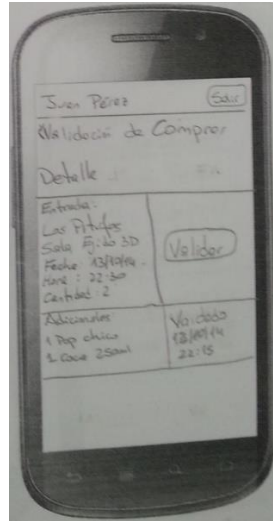 Juan Pérez Salir
Validación de Compras
Detalle
Entrada:
Los Pitufos
Sala Ejido 3D
Fecha: 13/10/14
Hora: 22:30
Cantidad: 2
Validar
Adicionales
1 Pop chico
1 Coca 250ml
Validado
13/10/14
22:15